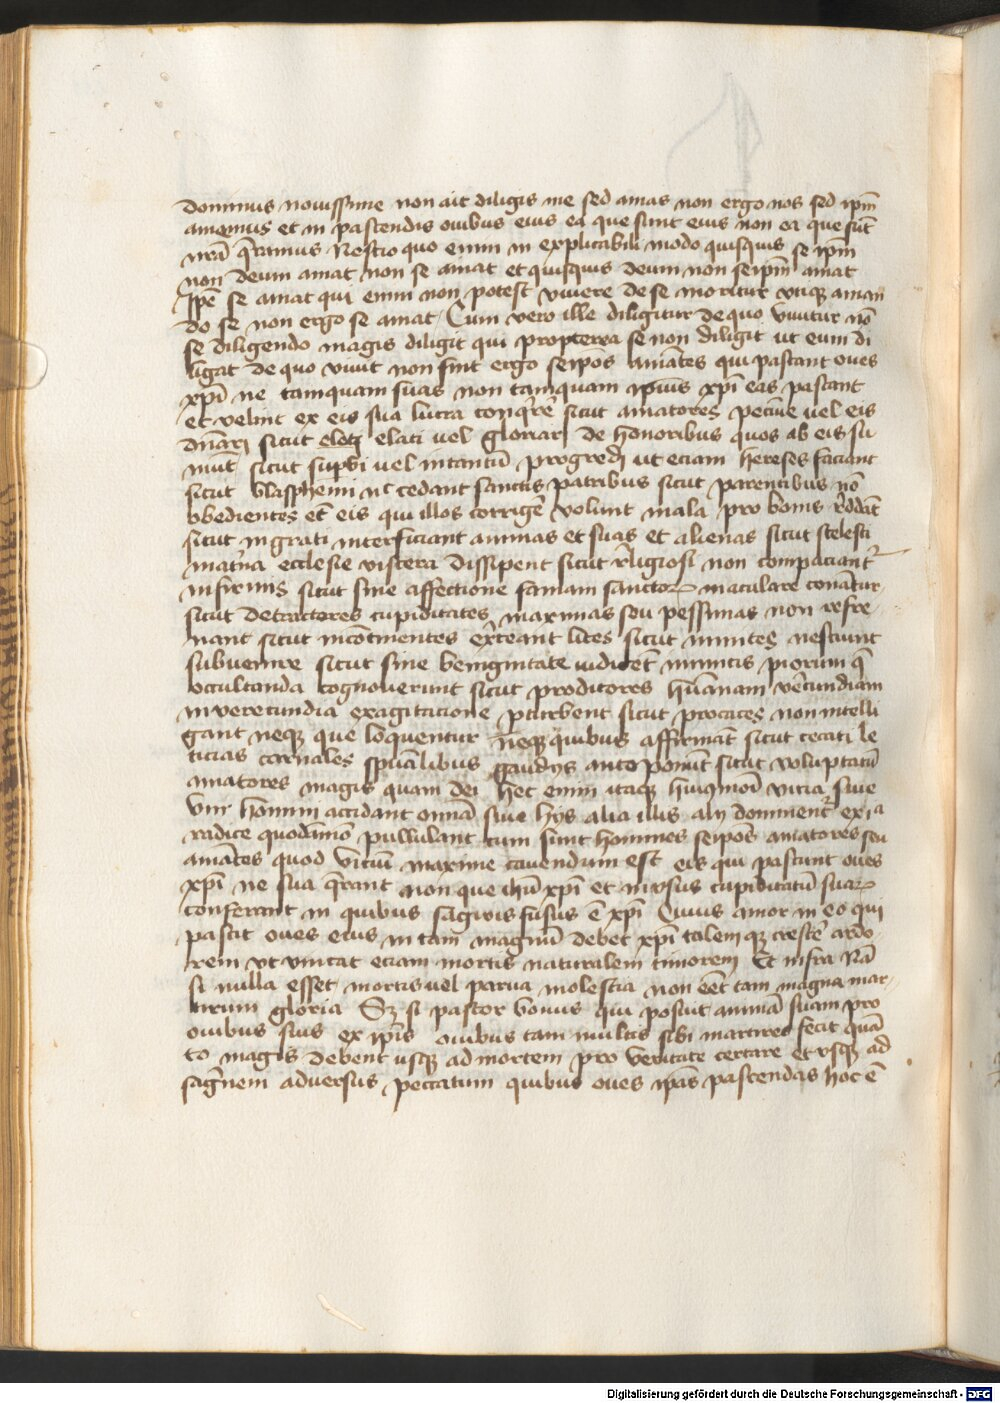 dominus novissime non ait diligis me sed amas non ergo nos sed ip̄m
amemus et in pascendis ouibus eius ea que sunt eius non ea que sūt
nr̄a q̄ramus Nescio quo enim in explicabili modo quisquis se ip̄m
non deum amat non se amat et quisquis deum non seip̄m amat
Ip̄e se amat qui enim non potest viuere de se moritur vtiqꝫ aman
do se non ergo se amat Cum vero ille diligitur de quo viuitur nō
se diligendo magis diligit qui propterea se non diligit ut eum di
ligat de quo viuit non sint ergo seipos amātes qui pascant oues
xp̄i ne tamquam suas non tamquam ipius xp̄i eas pascant
et velint ex eis sua lucra conq̄rē sicut amatores pecūie uel eis
dn̄ari sicut elati uel gloriari de honoribus quos ab eis su
mūt sicut supbi uel intantū progredi ut eciam hereses faciant
sicut blasphemi nc cedant sanctis patribus sicut parentibus nō
obedientes et eis qui illos corrigē volunt mala pro bonis rēddāt
sicut ingrati interficiant animas et suas et alienas sicut scelesti
mat̄na ecclesie viscera dissipent sicut rēligiosi non compaciant᷑
infirmis sicut sine affectione famam sanctoꝝ maculare conātur
sicut detractores cupiditates maximas seu pessimas non refre
nant sicut incōtinentes exērceant lites sicut inmites nesciunt
subuenire sicut sine benignitate iudicēt inimicis piorum q̄
occultanda cognouerunt sicut proditores hūanam vērcundiam
inverecundia exagitacione pturbent sicut procaces non intelli
gant neqꝫ que loquentur neqꝫ quibus affirmāt sicut cecati le
ticias carnales sp̄ualibus gaudijs antepōnūt sicut voluptatū
amatores magis quam dei hec enim itaqꝫ huiꝯmōi vicia siue
vni homini accidant omīa siue hijs alia illis alij dominent᷑ ex ia
radice quodāmō pullulant cum sunt homines seipos amatores seu
amātes quod vitiū maxime cauendum est eis qui pascunt oues
xp̄i ne sua q̄rant non que ihū xp̄i et in vsus cupiditatū suaꝝ
conferant in quibus sagwis fusus ē xp̄i Cuius amor in eo qui
pascit oues eius in tam magnū debet xp̄i talem qꝫ crescē ardo
rem vt vincat eciam mortis naturalem timorem Et infra Nā
si nulla esset mortis uel parua molestia non eēt tam magna mar
tirum gloria Sꝫ si pastor bonus qui posuit animā suam pro
ouibus suis ex ip̄is ouibus tam multas sibi martires fecit quā
to magis debent usqꝫ ad mortem pro veritate certare et vsqꝫ ad
sagnēm aduersus peccatum quibus oues ipās pascendas hoc ē
Digitalisierung gefördert durch die Deutsche Forschungsgemeinschaft - DFG